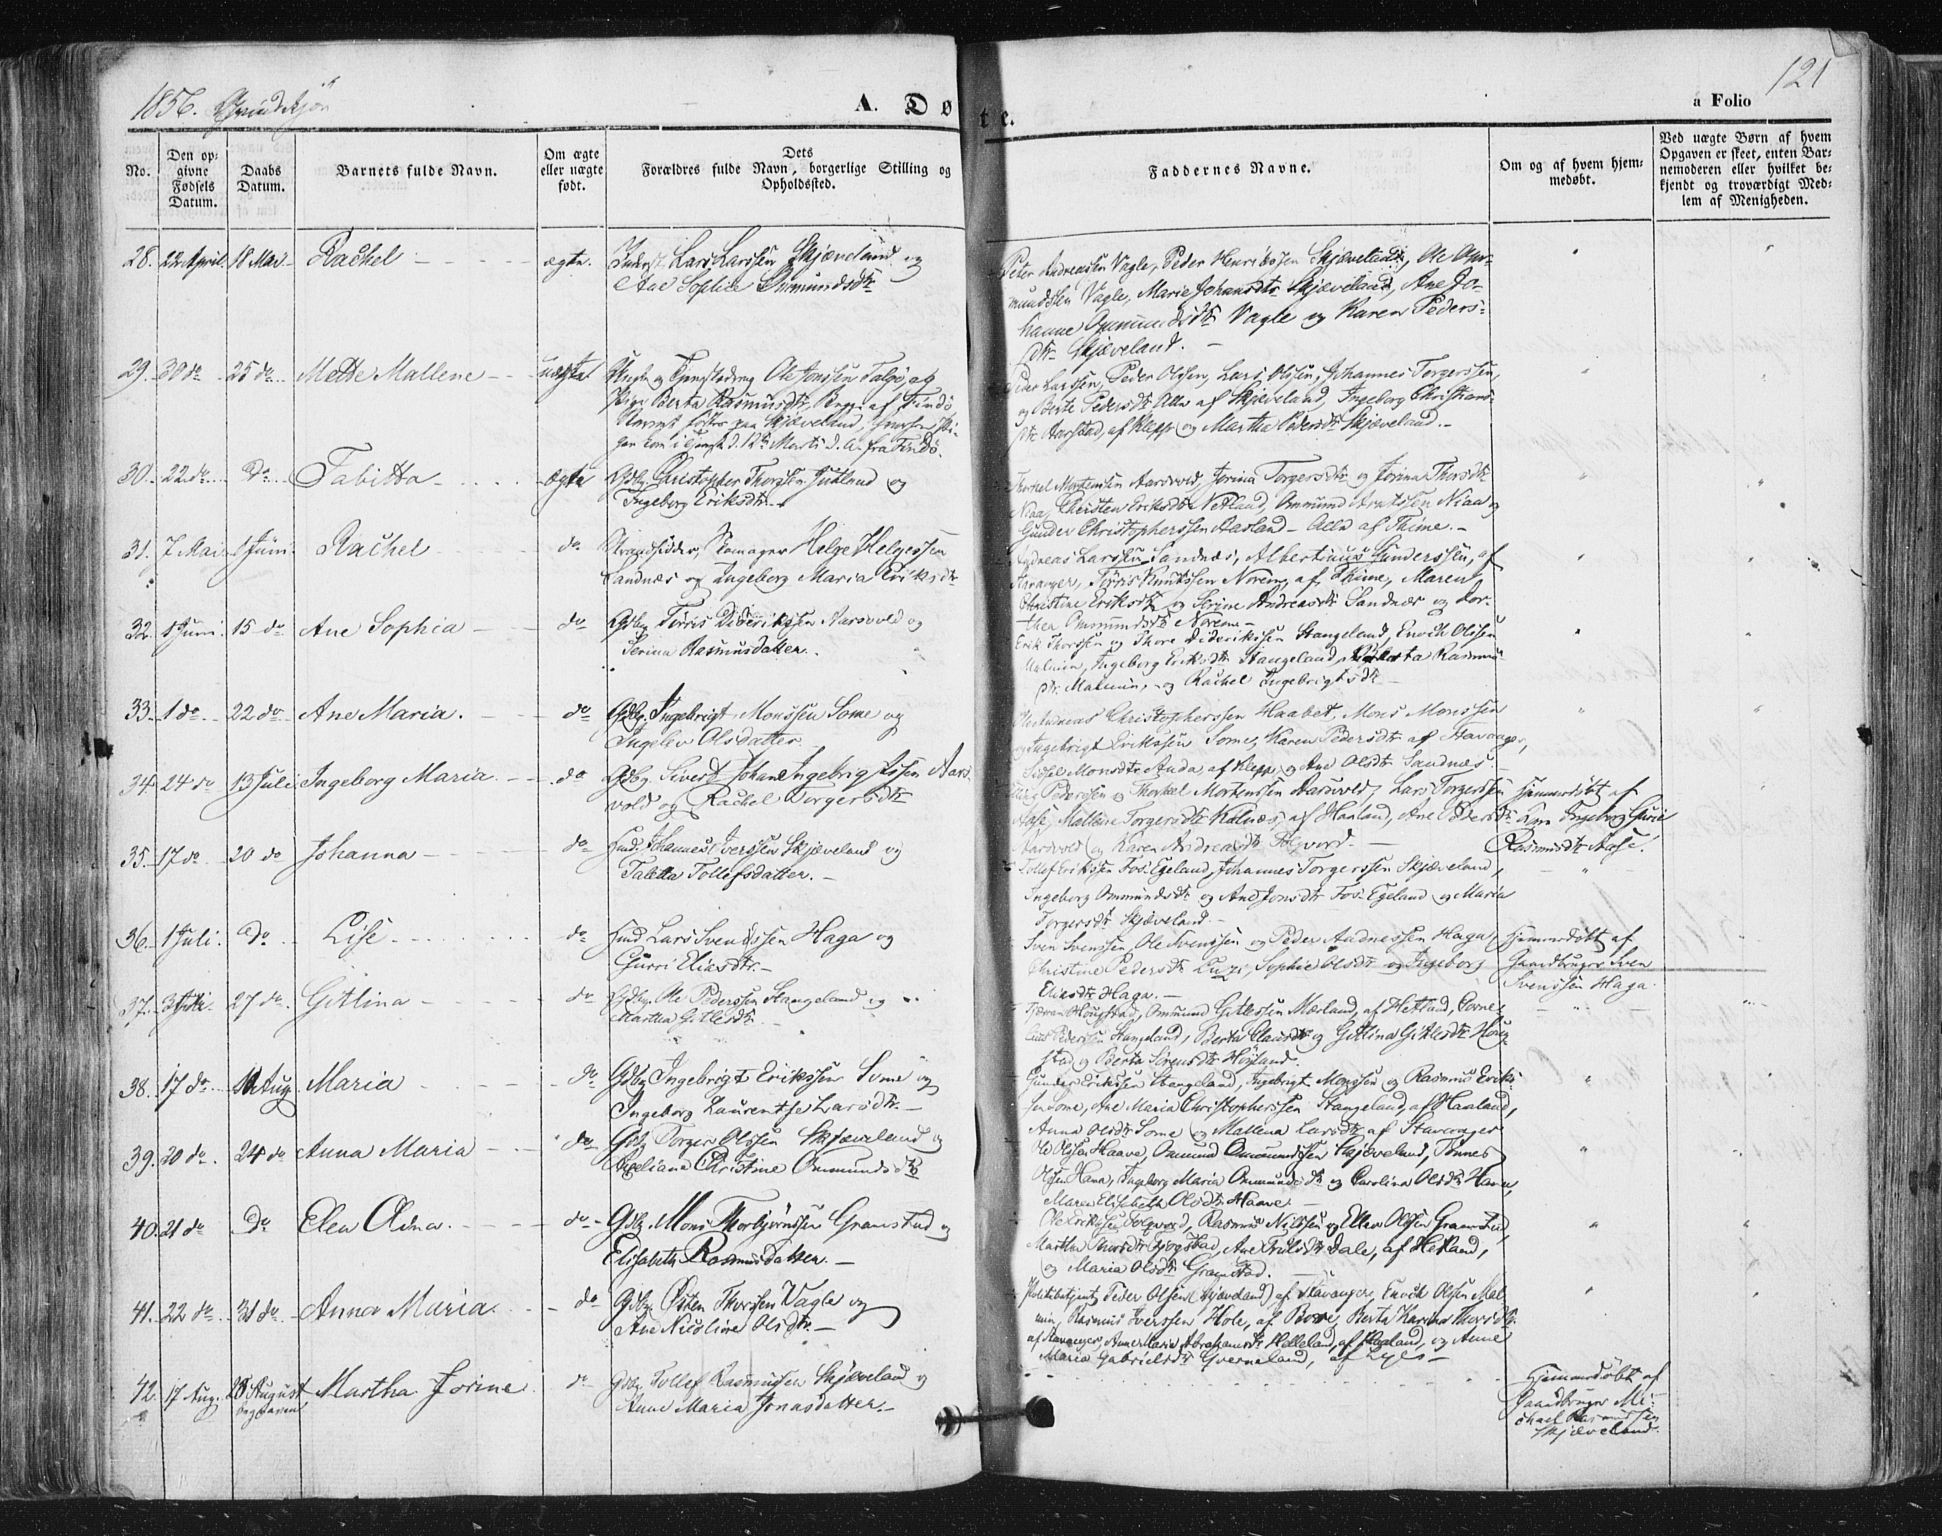 1856. Qvindekjøn
A. Døt
te.
a Folio 121
No.
Den op-
givne
Fødsels
Datum.
Daabs
Datum.
Barnets fulde Navn.
Om ægte
eller uægte
født.
Dets
Forældres fulde Navn, borgerlige Stilling og
Opholdssted.
Faddernes Navne.
Om og af hvem hjem-
medøbt.
Ved uægte Børn af hvem
Opgaven er skeet, enten Bar-
nemoderen eller hvilket be-
kjendt og troværdigt Med-
lem af Menigheden.
28. 22 April. 18 Mai Rachel ægte. Inderst Lars Larssen Skjæveland og
Ane Sophie Ommundsdtr
Peter Andreassen Vagle, Peder Henrikssen Skjæveland, Ole Om-
mundssen Vagle, Marie Johansdtr Skjæveland, Ane Jo-
hanne Ommundsdtr Vagle og Karen Peders-
dtr Skjæveland.
29. 30 do 25 do Mette Mallene uægte Ungk og Tjenestedreng Ole Jonssen Talgø, og
Pige Berta Rasmusdtr, Begge af Findø
Peder Larssen, Peder Olssen, Lars Olssen, Johannes Torgerssen,
og Berte Pedersdtr Alle af Skjæveland, Ingeborg Christians-
dtr Aarstad, af Klepp og Martha Pedersdtr Skjæveland.
30. 22 do Do Tabitta ægte Gdbr. Christopher Thorssen Jutland og
Ingeborg Eriksdtr
Thorkel Mortenssen Aarsvold, Jorina Torgersdtr og Jorina Thorsdtr
Njaa, Christen Eriksdtr Netland, Ommund Aretssen Njaa og
Gunder Christopherssen Aasland - Alle af Thime.
31. 7 Mai 1 Juni Rachel do Strandsidder, Skomager Helge Helgessen
Sandnæs og Ingeborg Maria Eriksdtr
Andreas Larssen Sandnæs, Albertinus Gunderssen, af
Stavanger, Tørris Knutssen Norem, af Thime, Maren
Christine Eriksdtr og Serine Andreasdtr Sandnæs og Dor-
thea Ommundsdtr Norem
32. 1 Juni 15 do Ane Sophia do Gdbr Tørris Dideriksen Aarsvold og
Serina Rasmusdatter.
Erik Thorssen og Thore Dideriksen Stangeland, Enoch Olssen
Malmin, Ingeborg Eriksdtr Stangeland, Berta Rasmus-
dtr Malmin, og Rachel Ingebrigtsdtr
33. 1 do 22 do Ane Maria. do Gdbr. Ingebrigt Monssen Some og
Ingelev Olsdatter
Andreas Christopherssen Haabet, Mons Monssen
og Ingebrigt Erikssen Some, Karen Pedersdtr af Stavanger,
Sidsel Monsdtr Anda, af Klepp og Ane Olsdtr Sandnæs
34. 24 do 13 Juli Ingeborg Maria do Gdbr Sivert Johan Ingebrigtssen Aars-
vold og Rachel Torgersdtr
Pederssen og Thorkel Mortenssen Aarsvold, Lars Torgerssen
Aase, Mallene Torgersdtr Kalnæs, af Haaland, Ane Pedersdtr
Aarsvold og Karen Andreasdtr
Hjemmedøbt af
Kone Ingeborg Gurie
Rasmusdtr Aase.
35. 17 do 20 do Johanna do Hmd. Johannes Iverssen Skjæveland og
Taletta Tollefsdatter.
Tollef Erikssen Fos-Egeland, Johannes Torgerssen Skjæveland,
Ingeborg Ommundsdtr og Ane Jonsdtr Fos-Egeland og Maria
Torgersdtr Skjæveland.
36. 1 Juli Do Lise do Hmd Lars Svendssen Haga og
Gurri Eliasdtr.
Sven Svenssen, Ole Svenssen og Peder Audnessen Haga
Christine Pedersdtr Luzi, Sophie Olsdtr og Ingeborg
Eliasdtr Haga.
Hjemmedøbt af
Gaardbruger Sven
Svenssen Haga.
37. 3 Juli 27 do Gitlina do Gdbr. Ole Pederssen Stangeland og
Martha Gitlesdtr
Hougstad, Ommund Gitlessen Mæland, af Hetland, Corne-
lius Pedersen Stangeland, Berta Clausdtr og Gitlina Gitlesdtr Houg-
stad og Berta Sørensdtr Høyland.
38. 17 do 10 Aug Maria do Gdbr Ingebrigt Erikssen Some og
Ingeborg Laurentse Larsdtr
Gunder Erikssen Stangeland, Ingebrigt Monssen og Rasmus Eriks-
sen Some, Ane Maria Christopherssen Stangeland, af Haaland,
Anna Olsdtr Some og Mallena Larsdtr af Stavanger
39. 20 do 24 do Anna Maria do Gdbr Torger Olssen Skjæveland og
Christine Ommundsdtr
Ole Olssen Haave, Ommund Ommundssen Skjæveland, Tønnes
Olssen Hana, Ingeborg Maria Ommundsdtr og Carolina Olsdtr Hana,
Maren Elisabeth Olsdtr Haave
40. 21 do Do Elen Adna. do Gdbr. Mons Thorbjørnssen Gramstad og
Elisabeth Rasmusdatter.
Ole Erikssen Folgvord, Rasmus Nilssen og Ellev Olssen Gramstad,
Martha Thorsdtr Bjørgstad, Ane Trulsdtr Dale, af Hetland,
og Maria Olsdtr Gramstad.
41. 22 do 31 do Anna Maria. do Gdbr. Østen Thorssen Vagle og
Ane Nicoline Olsdtr.
Politibetjent Peder Olssen (Skjæveland) af Stavanger, Enoch Olssen Mal-
min, Rasmus Iverssen Hole, af Bore, Berta Karina Thorsdtr
af Stavanger, Anne Marie Abrahamsdtr Helleland, af Haaland, og Anne
Maria Gabrielsdtr Qvernaland, af Lye
42. 17 Aug. 28 August
begraven Martha Jorine do Gdbr. Tollef Rasmussen Skjæveland og
Anne Maria Jonasdatter.
Hjemmedøbt af
Gaardbruger Mi-
chael Rasmussen
Skjæveland.